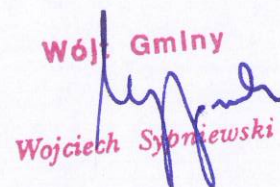 Wójt Gminy
Wojciech Sypniewski